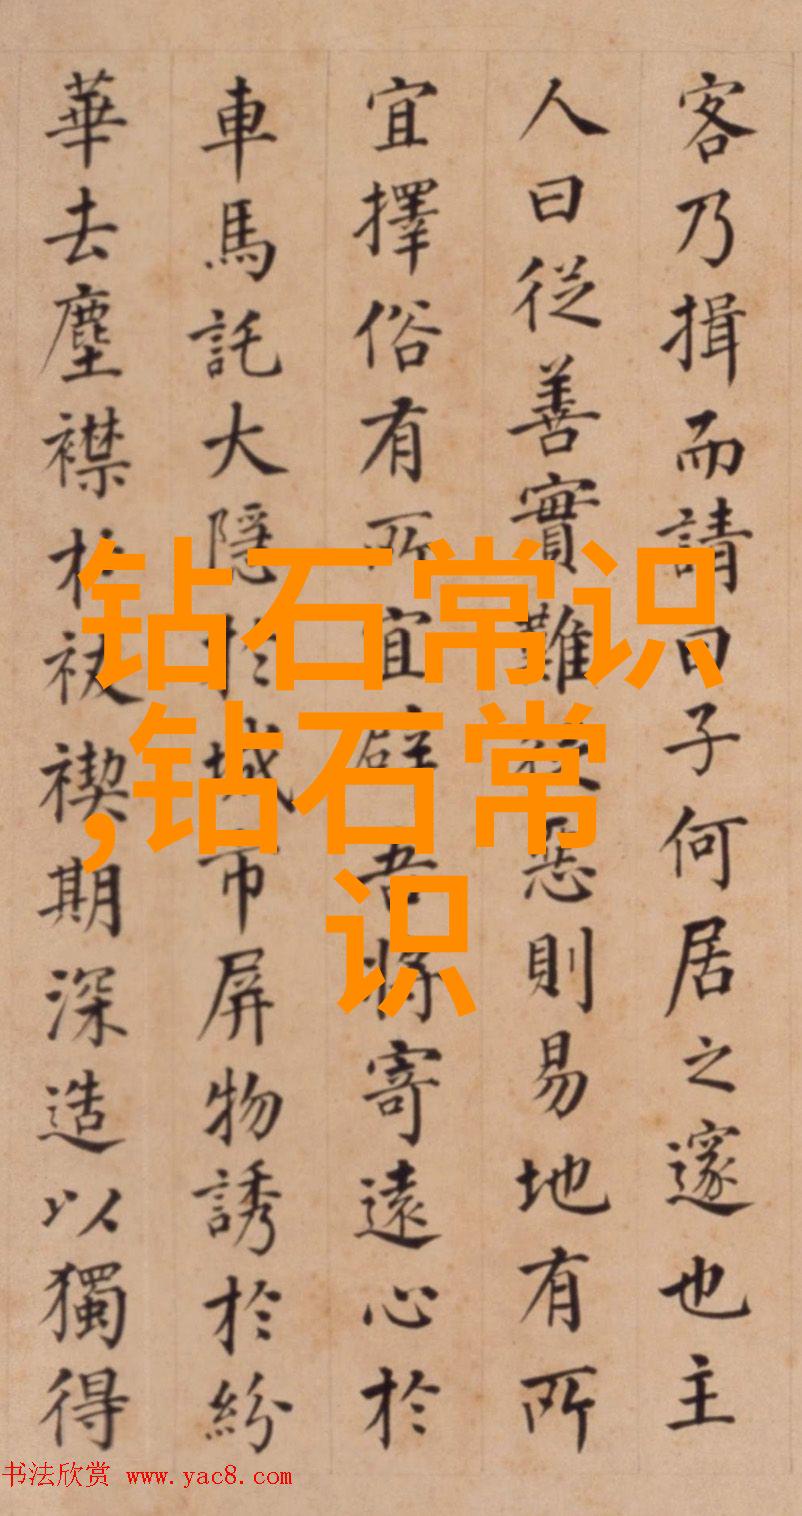 客乃揖而請曰子何居之邃也主
人曰從善實難從惡則易地有所
宜擇俗有所宜避吾將寄遠心於
車馬託大隱於城市屏物誘於紛
華去塵襟於祓禊期深造以獨得
钻石常识
,钻石常
识
书法欣赏 www.yac8.com